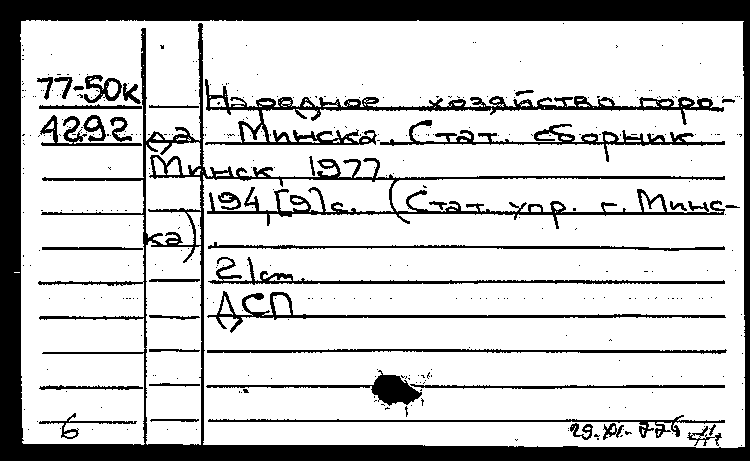 77-50к
4292
Народное хозяйство горо-
да Минска. Стат. сборник.
Минск, 1977.
194, [9] с. (Стат. упр. г. Минс-
ка).
21 cm.
ДСП.
6